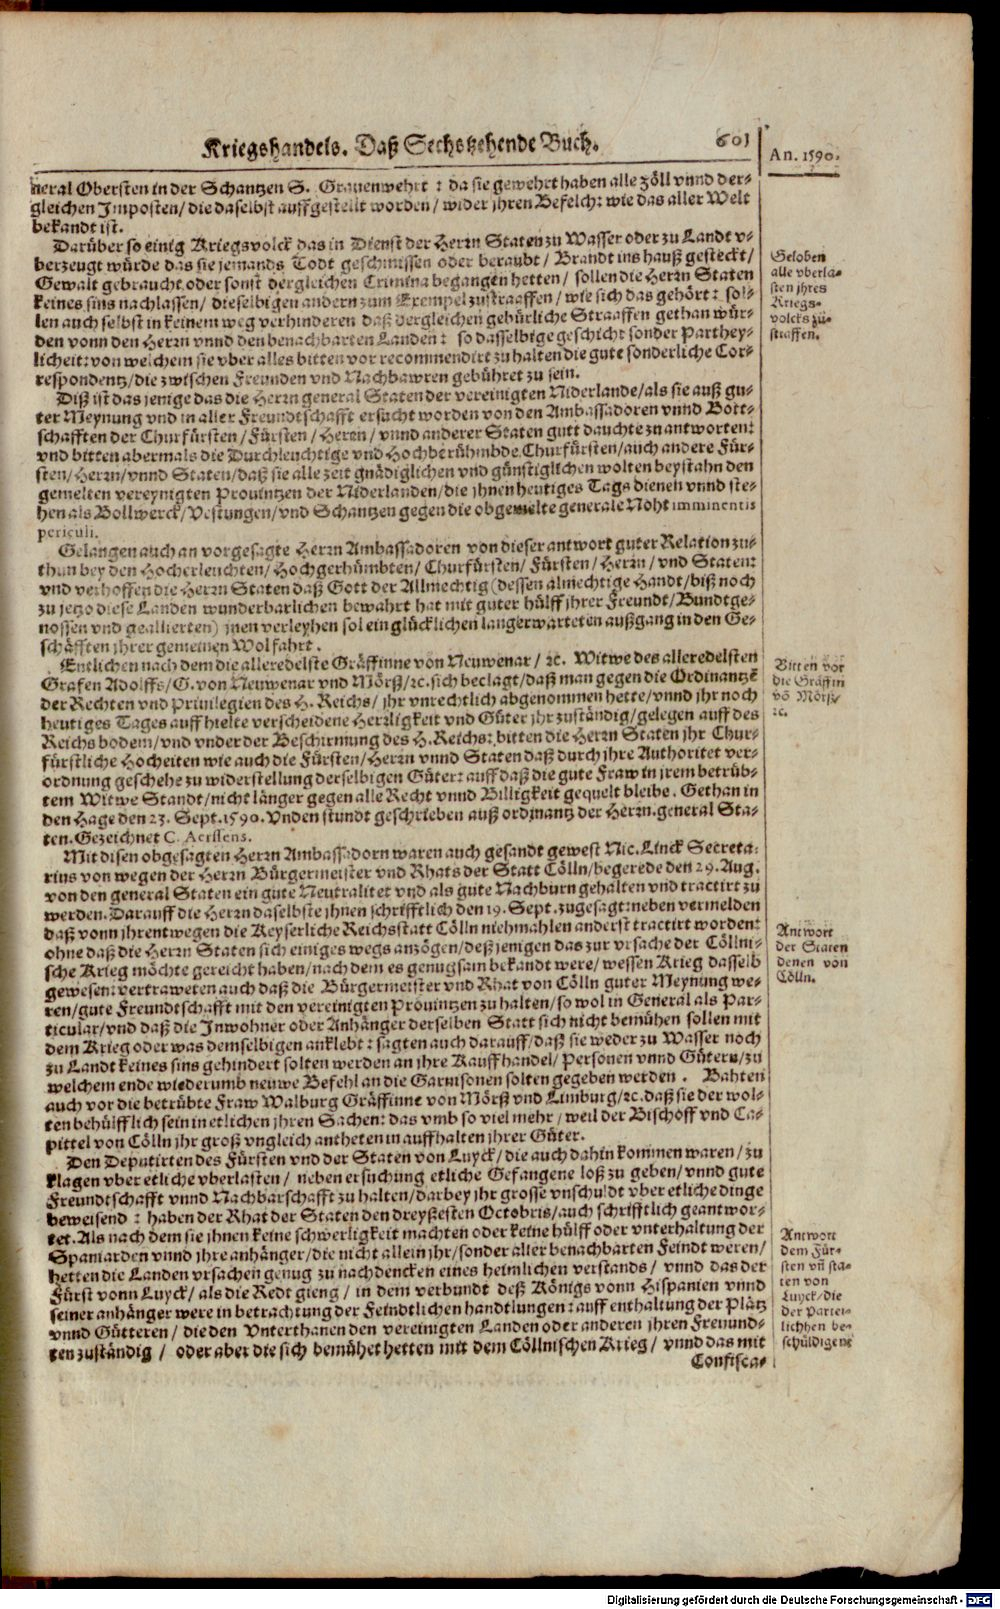 Kriegshandels. Daß Sechstzehende Buch. 601
An. 1590.
neral Obersten in der Schantzen S. Grauenwehrt : da sie gewehrt haben alle zöll vnnd der-
gleichen Imposten/ die daselbst auffgestellt worden/ wider jhren Befelch: wie das aller Welt
bekandt ist.
Darüber so einig Kriegsvolck das in Dienst der Herrn Staten zu Wasser oder zu Landt v-
berzeugt würde das sie jemands Todt geschmissen oder beraubt/ Brandt ins hauß gesteckt/
Gewalt gebraucht oder sonst dergleichen Crimina begangen hetten/ sollen die Herrn Staten
keines sins nachlassen/ dieselbigen andern zum Exempel zustraaffen/ wie sich das gehört: sol-
len auch selbst in keinem weg verhinderen daß dergleichen gebürliche Straaffen gethan wür-
den vonn den Herrn vnnd den benachbarten Landen: so dasselbige geschicht sonder Parthey-
licheit: von welchem sie vber alles bitten vor recommendirt zu halten die gute sonderliche Cor-
respondentz/ die zwischen Freunden vnd Nachbawren gebühret zu sein.
Geloben
alle vberla-
sten jhres
Kriegs-
volcks zu-
straffen.
Diß ist das jenige das die Herrn general Staten der vereinigten Niderlande/ als sie auß gu-
ter Meynung vnd in aller Freundtschafft ersucht worden von den Ambassadoren vnnd Bott-
schafften der Churfürsten/ Fürsten/ Herrn/ vnnd anderer Staten gutt dauchte zu antworten:
vnd bitten abermals die Durchleuchtige vnd Hochberühmbde Churfürsten/ auch andere Für-
sten/ Herrn/ vnnd Staten/ daß sie alle zeit gnädiglichen vnd günstiglichen wolten beystahn den
gemelten vereynigten Prouintzen der Niderlanden/ die jhnen heutiges Tags dienen vnnd ste-
hen als Bollwerck/ Vestungen/ vnd Schantzen gegen die obgemelte generale Noht imminentis
periculi.
Gelangen auch an vorgesagte Herrn Ambassadoren von dieser antwort guter Relation zu-
thun bey den Hocherleuchten/ Hochgerhümbten/ Churfürsten/ Fürsten/ Herrn/ vnd Staten:
vnd verhoffen die Herrn Staten daß Gott der Allmechtig (dessen almechtige Handt/ biß noch
zu jetzo diese Landen wunderbarlichen bewahrt hat mit guter hülff jhrer Freundt/ Bundtge-
nossen vnd geallierten) jnen verleyhen sol ein glücklichen langerwarteten außgang in den Ge-
schäfften jhrer gemeinen Wolfahrt.
Entlichen nach dem die alleredelste Gräffinne von Neuwenar/ ꝛc. Witwe des alleredelsten
Grafen Adolffs/ G. von Neuwenar vnd Mörß/ ꝛc. sich beclagt/ daß man gegen die Ordinantzē
der Rechten vnd Priuilegien des H. Reichs/ jhr vnrechtlich abgenommen hette/ vnnd jhr noch
heutiges Tages auffhielte verscheidene Herrligkeit vnd Güter jhr zuständig/ gelegen auff des
Reichs bodem/ vnd vnder der Beschirmung des H. Reichs: bitten die Herrn Staten jhr Chur-
fürstliche Hocheiten wie auch die Fürsten/ Herrn vnnd Staten daß durch jhre Authoritet ver-
ordnung geschehe zu widerstellung derselbigen Güter: auff daß die gute Fraw in jrem betrüb-
tem Witwe Standt/ nicht länger gegen alle Recht vnnd Billigkeit gequelt bleibe. Gethan in
den Hage den 23. Sept. 1590. Vnden stundt geschrieben auß ordinantz der Herrn general Sta-
ten. Gezeichnet C. Aerssens.
Bitten vor
die Gräffin
vō Mörß/
ꝛc.
Mit disen obgesagten Herrn Ambassadorn waren auch gesandt gewest Nic. Linck Secreta-
rius von wegen der Herrn Bürgermeister vnd Rhats der Statt Cölln/ begerede den 29. Aug.
von den general Staten ein gute Neutralitet vnd als gute Nachburn gehalten vnd tractirt zu
werden. Darauff die Herrn daselbste jhnen schrifftlich den 19. Sept. zugesagt: neben vermelden
daß vonn jhrentwegen die Keyserliche Reichsstatt Cölln niehmahlen anderst tractirt worden:
ohne daß die Herrn Staten sich einiges wegs anzögen/ deß jenigen das zur vrsache der Cöllni-
sche Krieg möchte gereicht haben/ nach dem es genugsam bekandt were/ wessen Krieg dasselb
gewesen: vertraweten auch daß die Bürgermeister vnd Rhat von Cölln guter Meynung we-
ren/ gute Freundtschafft mit den vereinigten Prouintzen zu halten/ so wol in General als Par-
ticular/ vnd daß die Inwohner oder Anhänger derselben Statt sich nicht bemühen sollen mit
dem Krieg oder was demselbigen anklebt: sagten auch darauff/ daß sie weder zu Wasser noch
zu Landt keines sins gehindert solten werden an jhre Kauffhandel/ Personen vnnd Gütern/ zu
welchem ende wiederumb neuwe Befehl an die Garnisonen solten gegeben werden. Bahten
auch vor die betrübte Fraw Walburg Gräffinne von Mörß vnd Limburg/ ꝛc. daß sie der wol-
ten behülfflich sein in etlichen jhren Sachen: das vmb so viel mehr/ weil der Bischoff vnd Ca-
pittel von Cölln jhr groß vngleich antheten in auffhalten jhrer Güter.
Antwort
der Staten
denen von
Cölln.
Den Deputirten des Fürsten vnd der Staten von Luyck/ die auch dahin kommen waren/ zu
klagen vber etliche vberlasten/ neben ersuchung etliche Gefangene loß zu geben/ vnnd gute
Freundtschafft vnnd Nachbarschafft zu halten/ darbey jhr grosse vnschuldt vber etliche dinge
beweisend: haben der Rhat der Staten den dreyßesten Octobris/ auch schrifftlich geantwor-
tet. Als nach dem sie jhnen keine schwerligkeit machten oder keine hülff oder vnterhaltung der
Spaniarden vnnd jhre anhänger/ die nicht allein jhr/ sonder aller benachbarten Feindt weren/
hetten die Landen vrsachen genug zu nachdencken eines heimlichen verstands/ vnnd das der
Fürst vonn Luyck/ als die Redt gieng/ in dem verbundt deß Königs vonn Hispanien vnnd
seiner anhänger were in betrachtung der Feindtlichen handtlungen: auffenthaltung der Plätz
vnnd Gütteren/ die den Vnterthanen den vereinigten Landen oder anderen jhren Freund-
ten zuständig/ oder aber die sich bemühet hetten mit dem Cöllnischen Krieg/ vnnd das mit
Confisca-
Antwort
dem Für-
sten vñ sta-
ten von
Luyck/ die
der Partei-
lichhen be-
schüldigent
Digitalisierung gefördert durch die Deutsche Forschungsgemeinschaft - DFG